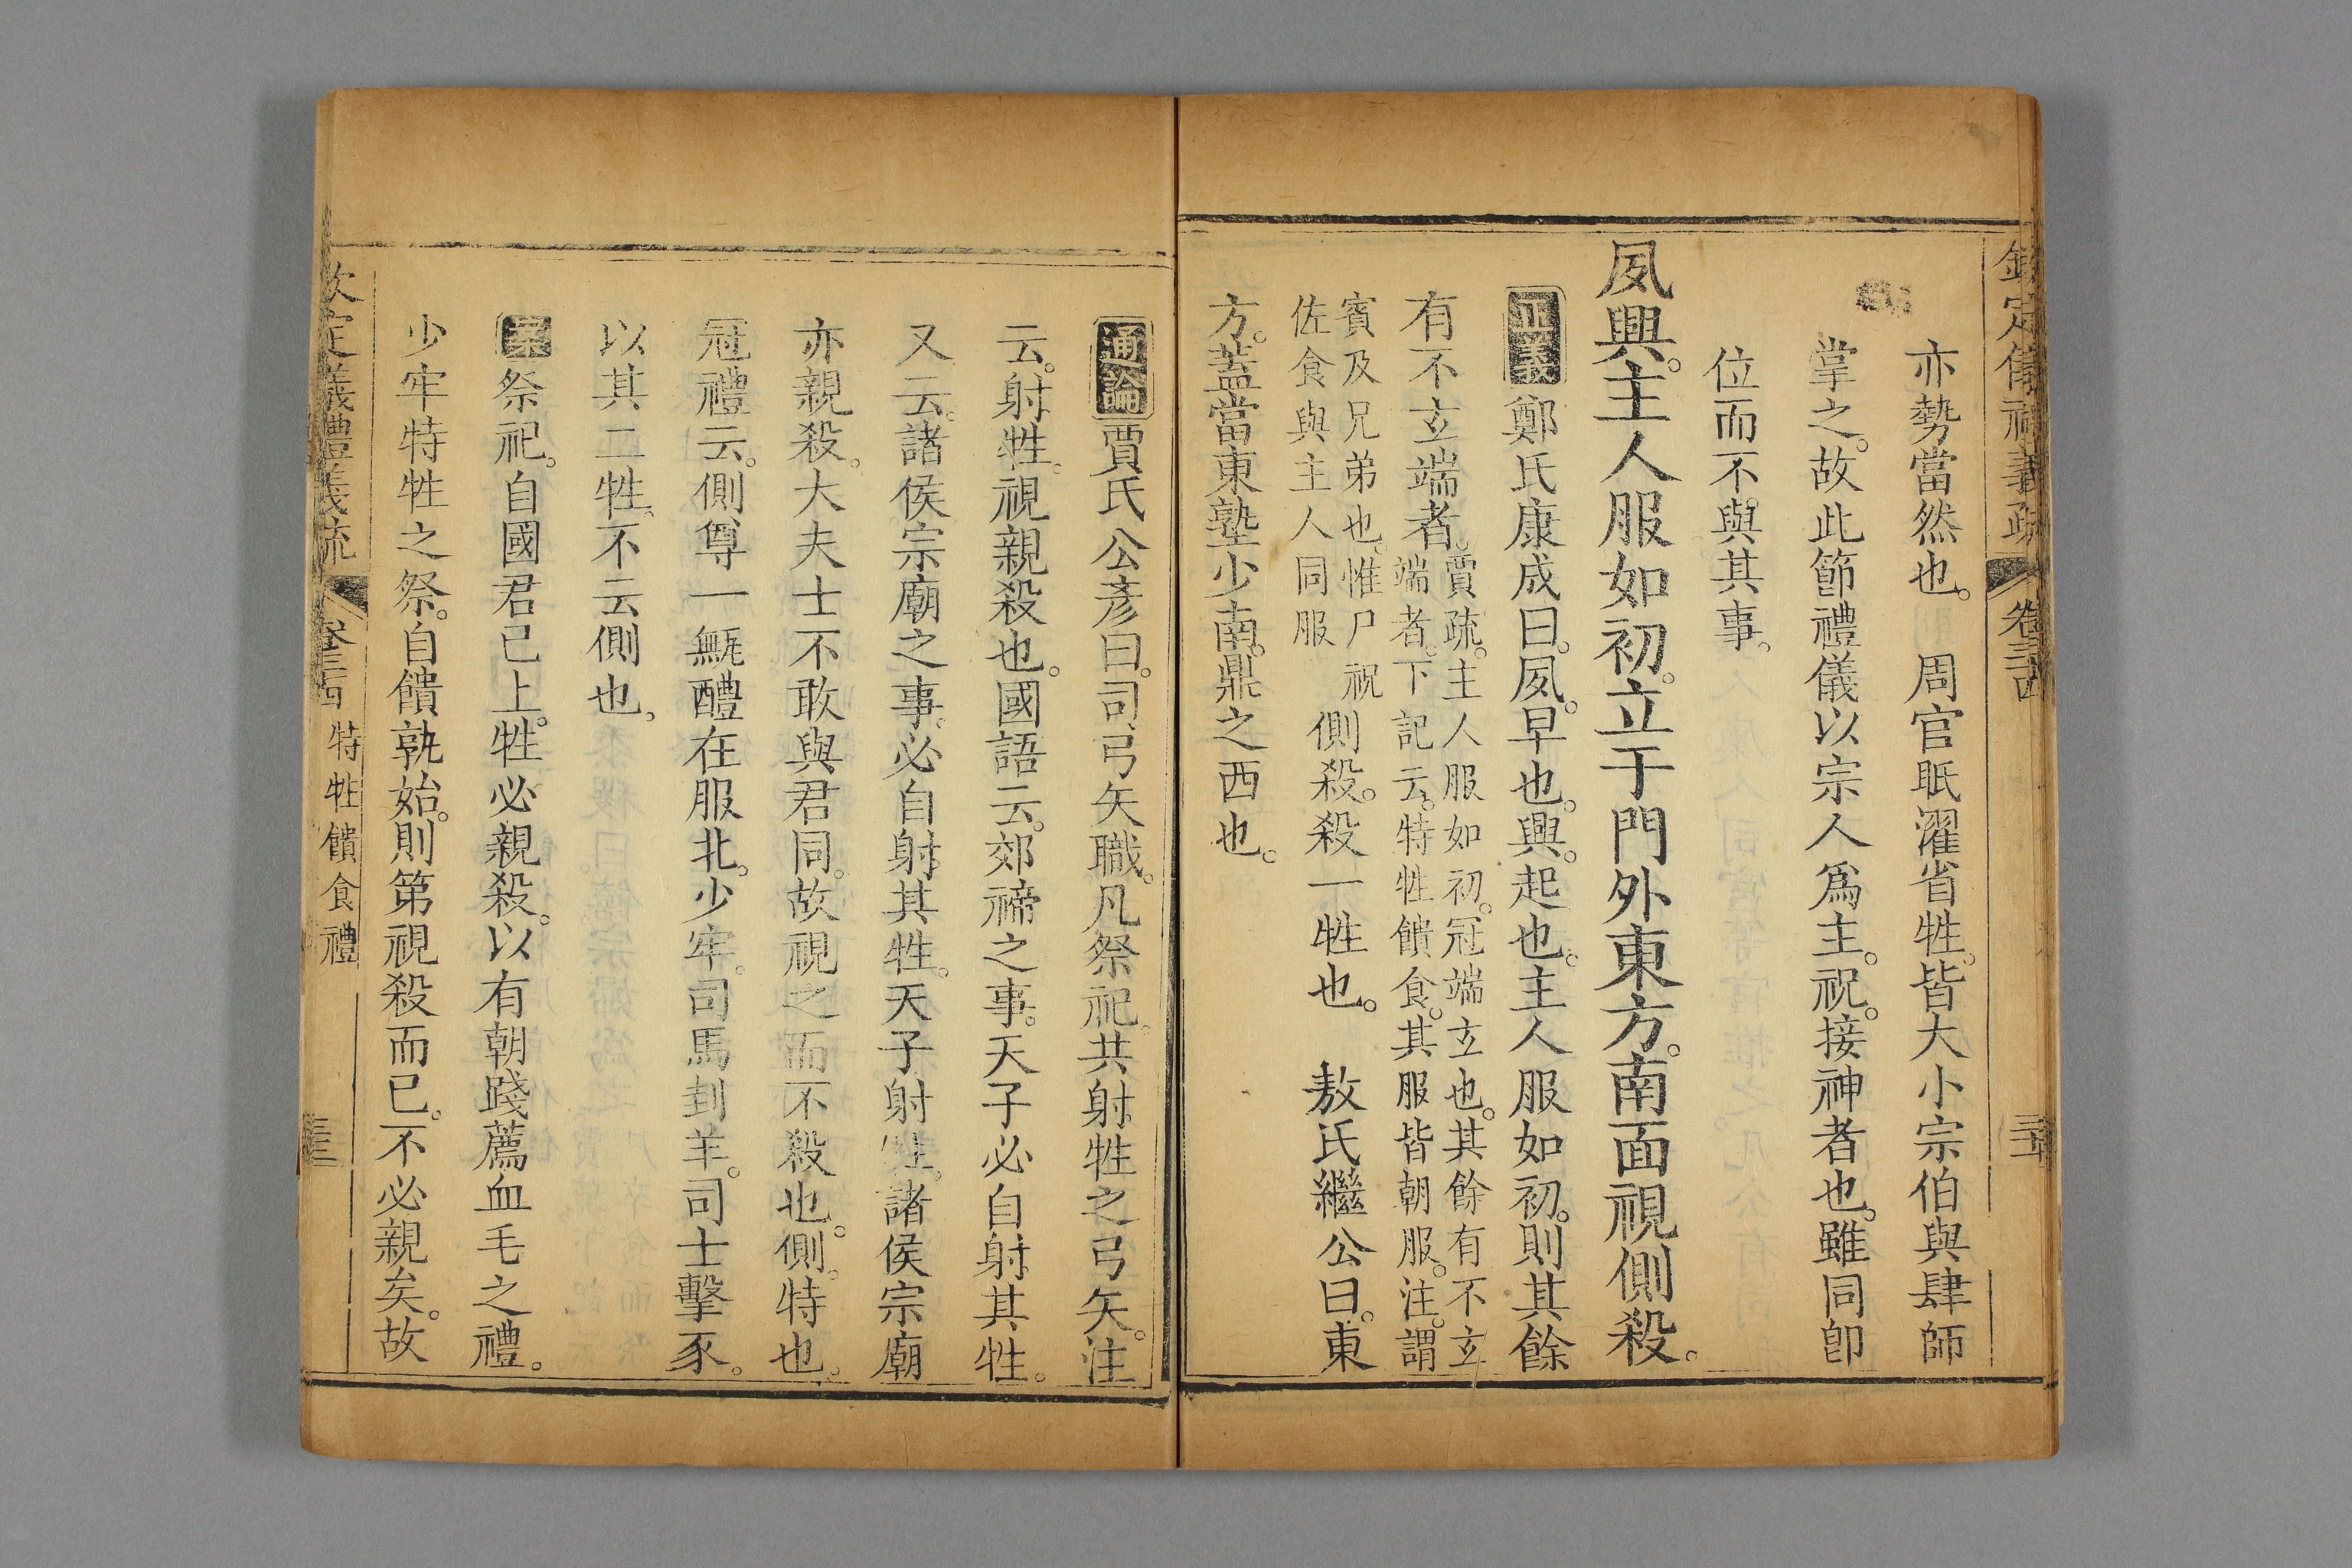 欽定儀禮義疏 卷三十四
亦勢當然也。 周官眡濯省牲。皆大小宗伯與肆師
掌之。故此節禮儀以宗人爲主。祝。接神者也。雖同卽
位而不與其事。
夙興。主人服如初。立于門外東方。南面視側殺。
正義 鄭氏康成曰。夙。早也。興。起也。主人服如初。則其餘
有不玄端者。
賈疏。主人服如初。冠端玄也。其餘有不玄
端者。下記云。特牲饋食。其服皆朝服。注。謂
賓及兄弟也。惟尸祝
佐食與主人同服
側殺。殺一牲也。 敖氏繼公曰。東
方。蓋當東塾少南。鼎之西也。
通論 賈氏公彥曰。司弓矢職。凡祭祀。共射牲之弓矢。注
云。射牲。視親殺也。國語云。郊禘之事。天子必自射其牲。
又云。諸侯宗廟之事。必自射其牲。天子射牲。諸侯宗廟
亦親殺。大夫士不敢與君同。故視之而不殺也。側。特也。
冠禮云。側尊一甒醴在服北。少牢。司馬刲羊。司士擊豕。
以其二牲。不云側也。
案 祭祀。自國君已上。牲必親殺。以有朝踐薦血毛之禮。
少牢特牲之祭。自饋孰始。則第視殺而已。不必親矣。故
欽定儀禮義疏 卷三十四 特牲饋食禮